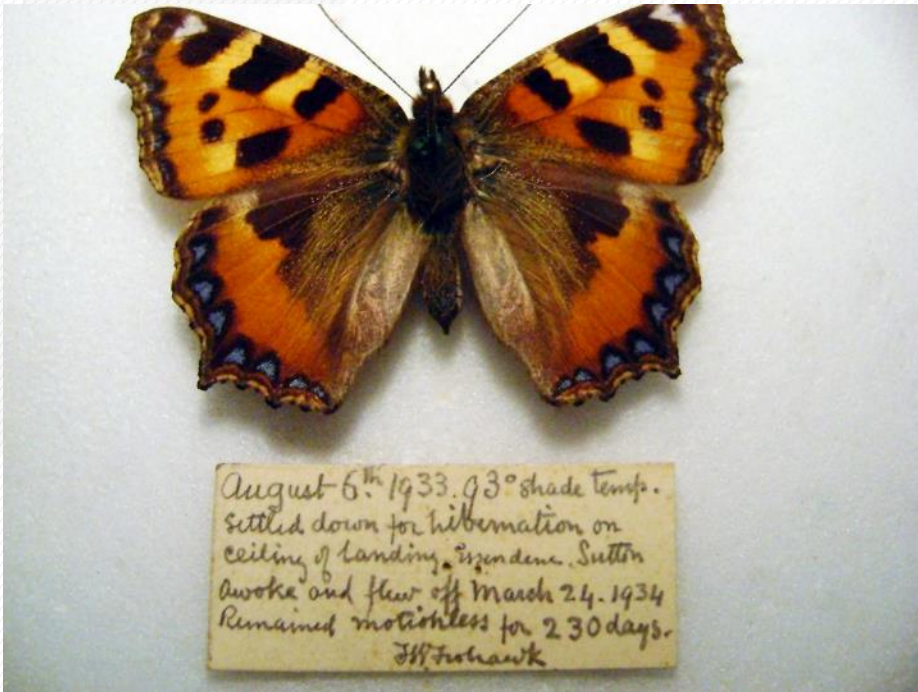 August 6th. 1933. 93° shade temp.
Settled down for hibernation on
ceiling of landing. Essendene. Sutton
Awoke and flew off March 24. 1934
Remained motionless for 230 days.
FW Frohawk